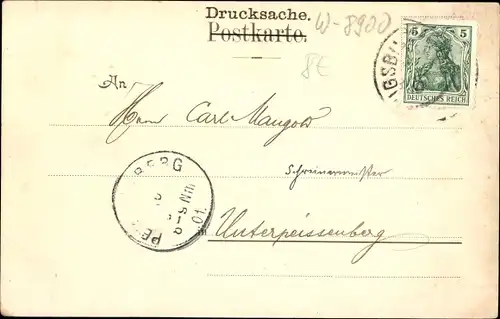 Drucksache.
Postkarte.
W-8900
8€
5 5
DEUTSCHES REICH
GSB
An
Herrn Carl Mangold
Schreinermeister
in Unterpeissenberg
BERG
Nm
01.
PEI